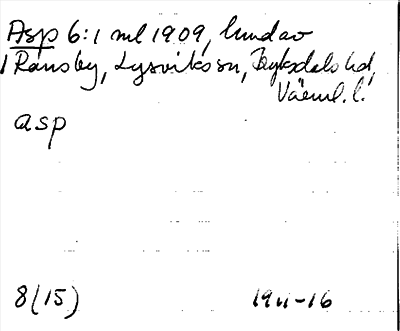 Asp 6:1 ml 1909, lund av
1 Ransby, Lysviks sn, Fryksdals hd,
Värml. l.
asp
8(15) 1911-16